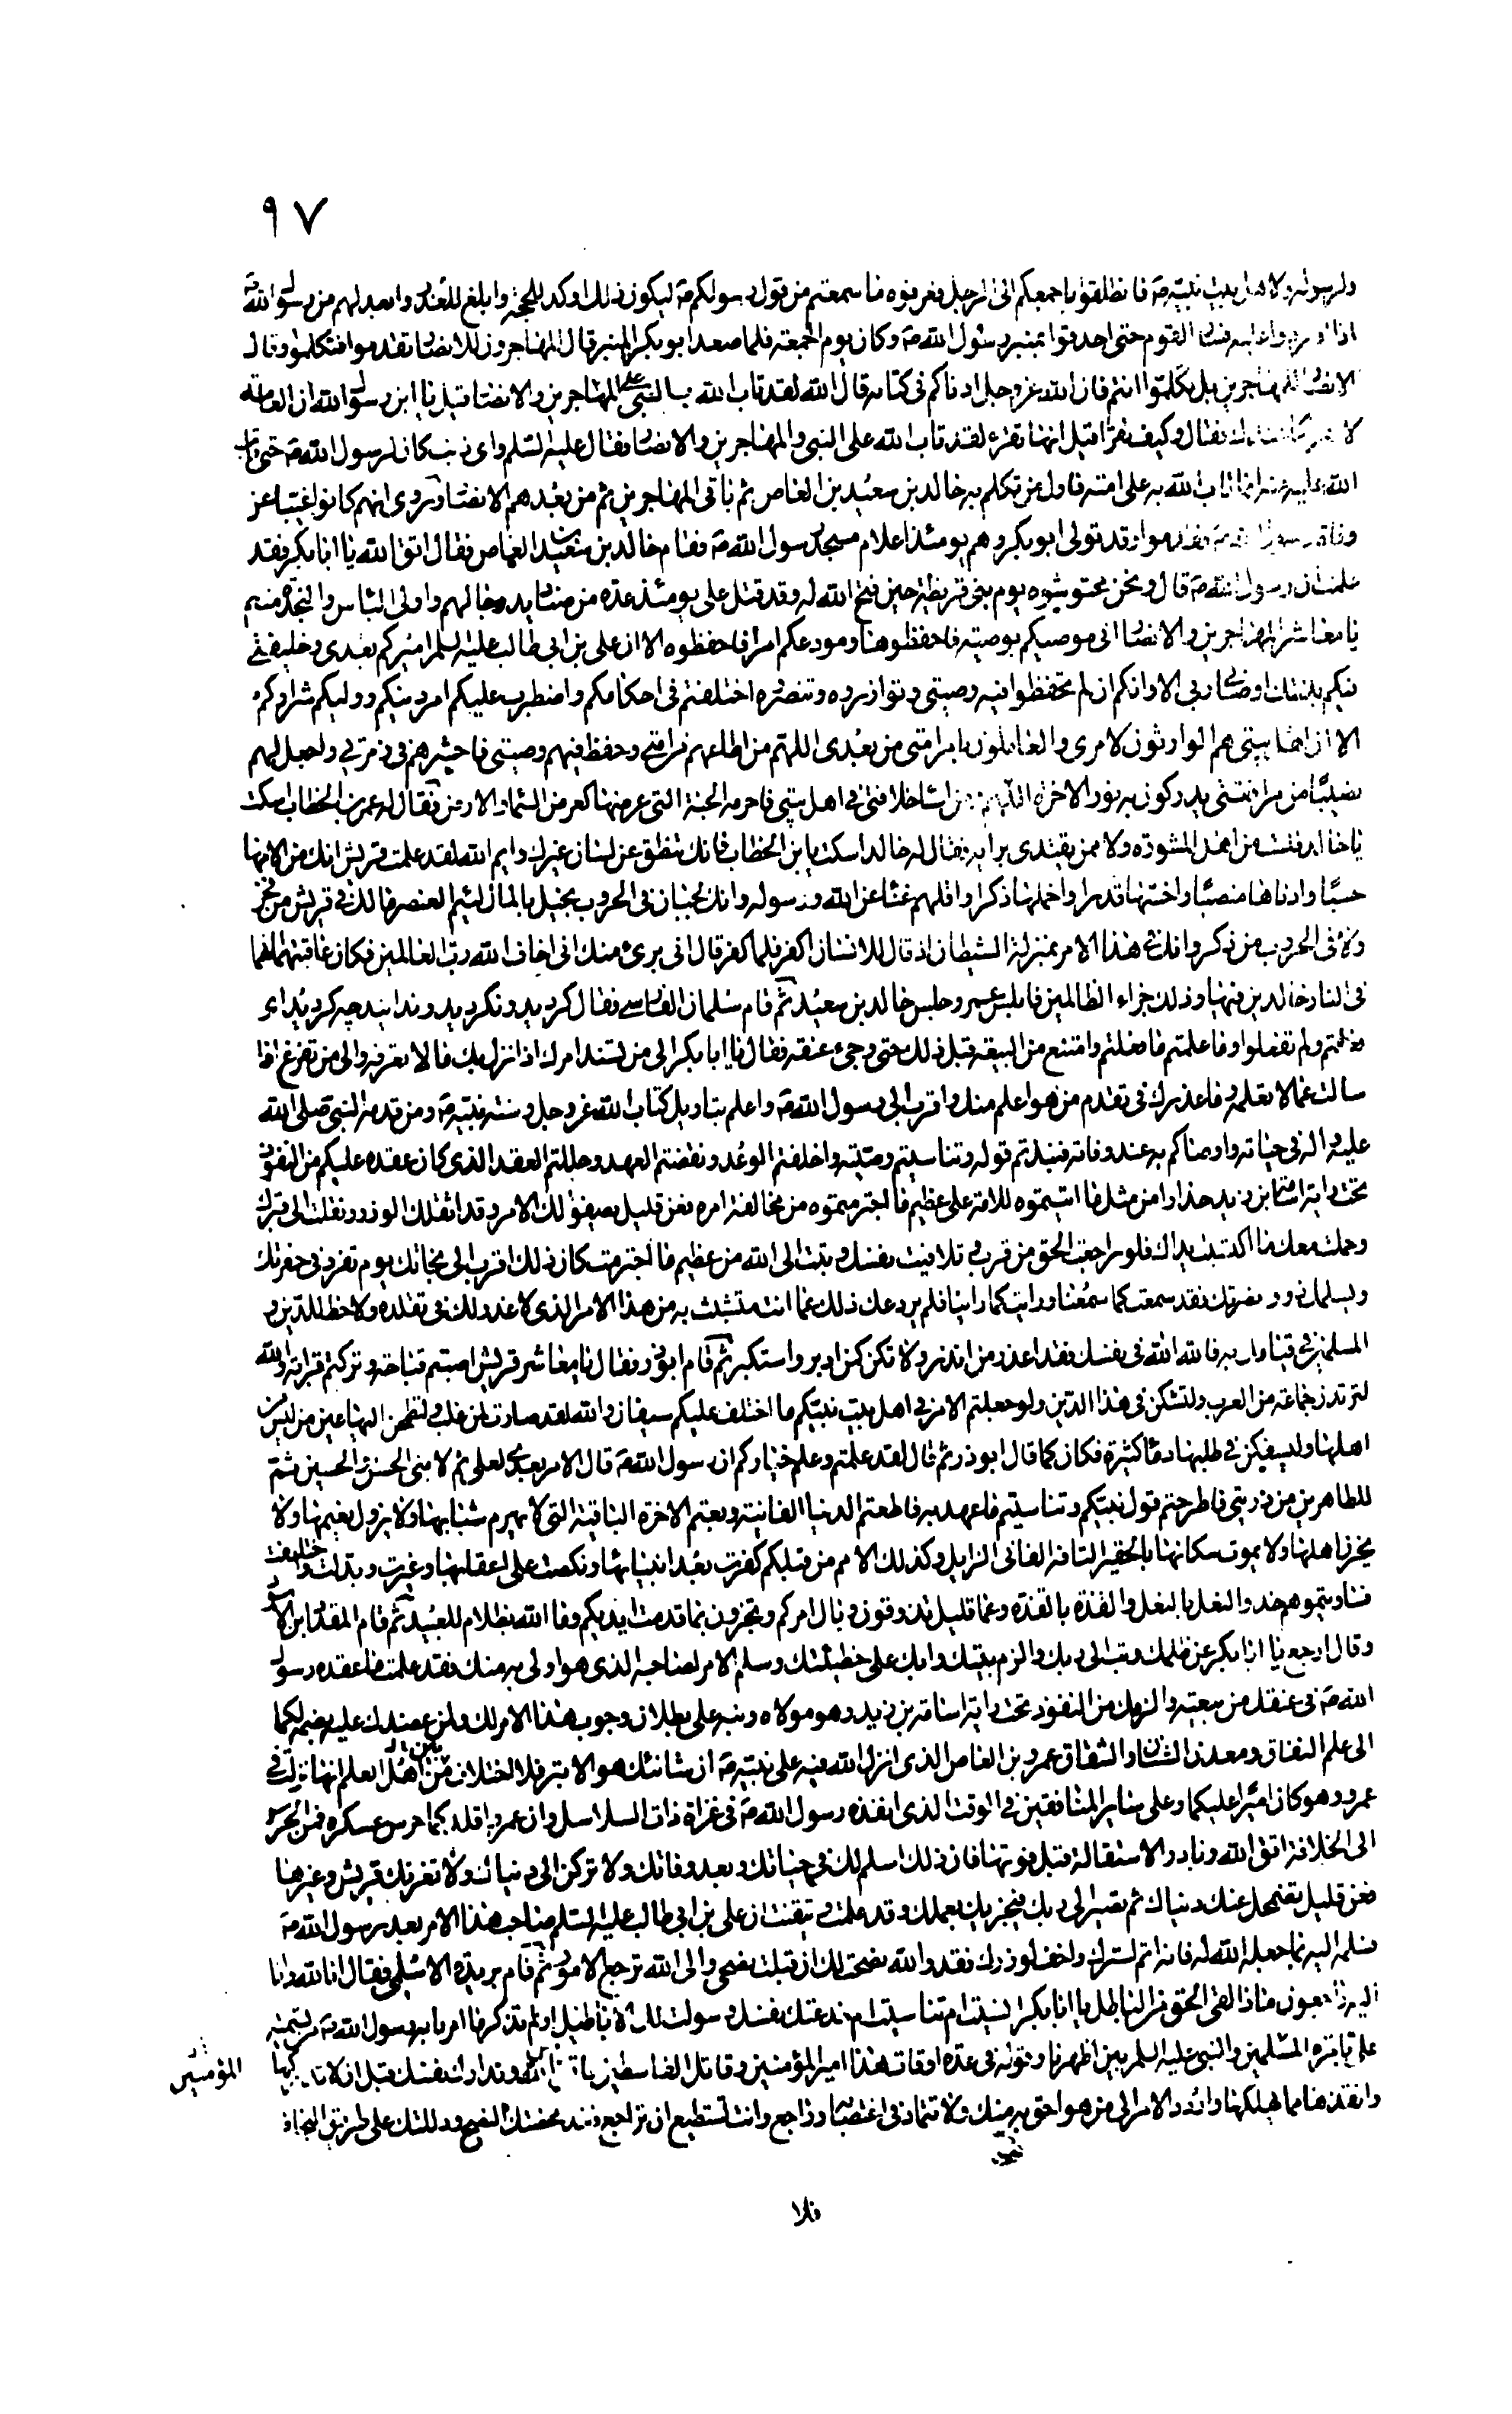 ٩٧
ولرسوله ولاهل بيت نبيه ص فانطلقوا باجمعكم الى الرجل فعرفوه ما سمعتم من قول رسولكم ص ليكون ذلك اوكد للحجة وابلغ للعذر وابعد لهم من رسول الله ص
اذا وردوا عليه فسار القوم حتى احدقوا بمنبر رسول الله ص وكان يوم الجمعة فلما صعد ابو بكر المنبر قال المهاجرون للانصار تقدموا فتكلموا وقال
الانصار للمهاجرين بل تكلموا انتم فان الله عز وجل ادناكم فى كتابه قال الله لقد تاب الله بالنبى على المهاجرين والانصار قيل يا ابن رسول الله ان العامة
لا تقرء كما عندك فقال وكيف تقرأ قيل انها تقرء لقد تاب الله على النبى والمهاجرين والانصار فقال عليه السلم واى ذنب كان لرسول الله ص حتى تاب
الله عليه منه انما تاب الله به على امته فاول من تكلم به خالد بن سعيد بن العاص ثم باقى المهاجرين ثم من بعدهم الانصار وروى انهم كانوا غيبا عن
وفاة رسول الله ص فقدموا وقد تولى ابو بكر وهم يومئذ اعلام مسجد رسول الله ص وقام خالد بن سعيد بن العاص فقال اتق الله يا ابا بكر فقد
علمت ان رسول الله ص قال ونحن محتوشوه يوم بنى قريظة حين فتح الله له وقد قتل على يومئذ عدة من صناديد رجالهم واولى الباس والنجدة منهم
يا معاشر المهاجرين والانصار انى موصيكم بوصية فاحفظوها ومودعكم امرا فاحفظوه الا ان على بن ابى طالب عليه السلم اميركم بعدى وخليفتى
فيكم بذلك اوصانى ربى الا وانكم ان لم تحفظوا فيه وصيتى وتوازروه وتنصروه اختلفتم فى احكامكم واضطرب عليكم امر دينكم ووليكم شراركم
الا ان اهل بيتى هم الوارثون لامرى والعاملون بامر امتى من بعدى اللهم من اطاعهم من امتى وحفظ فيهم وصيتى فاحشرهم فى زمرتى واجعل لهم
نصيبا من مرافقتى يدركون به نور الاخرة اللهم ومن اساء خلافتى فى اهل بيتى فاحرمه الجنة التى عرضها كعرض السماء والارض فقال له عمر بن الخطاب اسكت
يا خالد فلست من اهل المشورة ولا ممن يقتدى برأيه فقال له خالد اسكت يا بن الخطاب فانك تنطق عن لسان غيرك وايم الله لقد علمت قريش انك من الامها
حسبا وادناها منصبا واخسها قدرا واخملها ذكرا واقلهم غناء عن الله ورسوله وانك لجبان فى الحروب بخيل بالمال لئيم العنصر مالك فى قريش من فخر
ولا فى الحروب من ذكر وانك فى هذا الامر بمنزلة الشيطان اذ قال للانسان اكفر فلما كفر قال انى برىء منك انى اخاف الله رب العالمين فكان عاقبتهما انهما
فى النار خالدين فيها وذلك جزاء الظالمين فابلس عمر وجلس خالد بن سعيد ثم قام سلمان الفارسى فقال كرديد ونكرديد وندانيد چه كرديد اى
فعلتم ولم تفعلوا وما علمتم ما فعلتم وامتنع من البيعة قبل ذلك حتى وجىء عنقه فقال يا ابا بكر الى من تسند امرك اذا نزل بك ما لا تعرفه والى من تفزع اذا
سالت عما لا تعلمه وما عذرك فى تقدم من هو اعلم منك واقرب الى رسول الله ص واعلم بتاويل كتاب الله عز وجل وسنة نبيه ص ومن قدمه النبى صلى الله
عليه واله فى حياته واوصاكم به عند وفاته فنبذتم قوله وتناسيتم وصيته واخلفتم الوعد ونقضتم العهد وحللتم العقد الذى كان عقده عليكم من النفوذ
تحت راية اسامة بن زيد حذرا من مثل ما اتيتموه للامة على عظيم ما اجترمتموه من مخالفة امره فعن قليل يصفو لك الامر وقد اثقلك الوزر ونقلت الى قبرك
وحملت معك ما اكتسبت يداك فلو راجعت الحق من قرب وتلافيت نفسك وتبت الى الله من عظيم ما اجترمت كان ذلك اقرب الى نجاتك يوم تفرد فى حفرتك
ويسلمك ذوو نصرتك فقد سمعت كما سمعنا ورايت كما راينا فلم يردعك ذلك عما انت متشبث به من هذا الامر الذى لا عذر لك فى تقلده ولا حظ للدين و
المسلمين فى قيامك به فالله الله فى نفسك فقد اعذر من انذر ولا تكن كمن ادبر واستكبر ثم قام ابوذر وقال يا معاشر قريش اصبتم قباحة وتركتم قرابة والله
لترتدن جماعة من العرب ولتشكن فى هذا الدين ولو جعلتم الامر فى اهل بيت نبيكم ما اختلف عليكم سيفان والله لقد صارت لمن غلب ولتطمحن اليها عين من ليس من
اهلها وليسفكن فى طلبها دماء كثيرة فكان كما قال ابوذر ثم قال لقد علمتم وعلم خياركم ان رسول الله ص قال الامر بعدى لعلى ثم لابنى الحسن والحسين ثم
للطاهرين من ذريتى فاطرحتم قول نبيكم وتناسيتم ما عهد به فاطعتم الدنيا الفانية وبعتم الاخرة الباقية التى لا يهرم شبابها ولا يزول نعيمها ولا
يحزن اهلها ولا يموت سكانها بالحقير التافه الفانى الزايل وكذلك الامم من قبلكم كفرت بعد انبيائها ونكصت على اعقابها وغيرت وبدلت واختلفت
فساويتموهم حذو النعل بالنعل والقذة بالقذة وعما قليل تذوقون وبال امركم وتجزون بما قدمت ايديكم وما الله بظلام للعبيد ثم قام المقداد بن الاسود
وقال ارجع يا ابا بكر عن ظلمك وتب الى ربك والزم بيتك وابك على خطيئتك وسلم الامر لصاحبه الذى هو اولى به منك فقد علمت ما عقده رسول
الله ص فى عنقك من بيعته والزمك من النفوذ تحت راية اسامة بن زيد وهو مولاه ونبه على بطلان وجوب هذا الامر لك ولمن عضدك عليه بضمه لكما
الى علم النفاق ومعدن الشنآن والشقاق عمرو بن العاص الذى انزل الله فيه على نبيه ص ان شانئك هو الابتر فلا اختلاف بين اهل العلم انها نزلت فى
عمرو وهو كان اميرا عليكما وعلى ساير المنافقين فى الوقت الذى انفذه رسول الله ص فى غزاة ذات السلاسل وان عمروا قلدكما حرس عسكره فمن الحرس
الى الخلافة اتق الله وبادر الاستقالة قبل فوتها فان ذلك اسلم لك فى حياتك وبعد وفاتك ولا تركن الى دنياك ولا تغرنك قريش وغيرها
فعن قليل تضمحل عنك دنياك ثم تصير الى ربك فيجزيك بعملك وقد علمت وتيقنت ان على بن ابى طالب عليه السلم صاحب هذا الامر بعد رسول الله ص
فسلمه اليه بما جعله الله له فانه اتم لسترك واخف لوزرك فقد والله نصحت لك ان قبلت نصحى والى الله ترجع الامور ثم قام بريدة الاسلمى فقال انا لله وانا
اليه راجعون ماذا لقى الحق من الباطل يا ابا بكر انسيت ام تناسيت ام خدعتك نفسك وسولت لك الاباطيل اولم تذكر ما امرنا به رسول الله ص من تسمية
على بامرة المسلمين والنبى عليه السلم بين اظهرنا وقوله فى عدة اوقات هذا امير المؤمنين وقاتل القاسطين وتدارك نفسك قبل ان لا تدركها
المؤمنين
وانقذها مما يهلكها واردد الامر الى من هو احق به منك ولا تتماد فى اغتصابه وراجع وانت تستطيع ان تراجع فقد محضتك النصح ودللتك على طريق النجاة
فلا